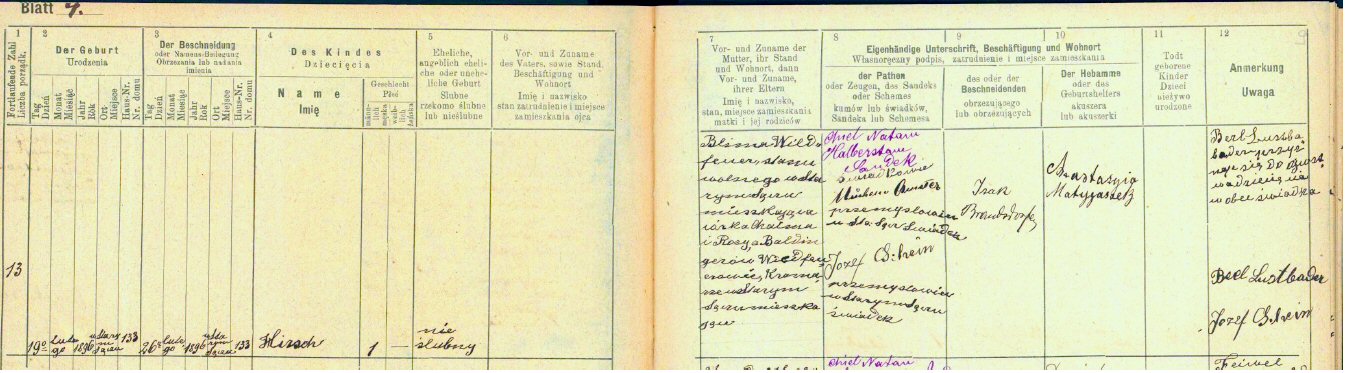 Blatt 7.
1
Fortlaufende Zahl
Liczba porządk.
2
Der Geburt
Urodzenia
Tag
Dzień
Monat
Miesiąc
Jahr
Rok
Ort
Miejsce
Haus-Nr.
Nr. domu
3
Der Beschneidung
oder Namens-Beilegung
Obrzezania lub nadania
imienia
Tag
Dzień
Monat
Miesiąc
Jahr
Rok
Ort
Miejsce
Haus-Nr.
Nr. domu
4
Des Kindes
Dziecięcia
Name
Imię
Geschlecht
Płeć
5
Eheliche,
angeblich eheli-
che oder unehe-
liche Geburt
Ślubne
rzekomo ślubne
lub nieślubne
6
Vor- und Zuname
des Vaters, sowie Stand,
Beschäftigung und
Wohnort
Imię i nazwisko
stan zatrudnienie i miejsce
zamieszkania ojca
13
19º
lute
go
1896
w Stary
m
Sączu
133
26º
lute
go
1896
w Sta
rym
Sączu
133
Hirsch
1
—
nie
ślubny
7
Vor- und Zuname der
Mutter, ihr Stand
und Wohnort, dann
Vor- und Zuname,
ihrer Eltern
Imię i nazwisko,
stan, miejsce zamieszkania
matki i jej rodziców
Eigenhändige Unterschrift, Beschäftigung und Wohnort
Własnoręczny podpis, zatrudnienie i miejsce zamieszkania
8
der Pathen
oder Zeugen, des Sandeks
oder Schemes
kumów lub świadków,
Sandeka lub Schemesa
9
des oder der
Beschneidenden
obrzezującego
lub obrzezujących
10
Der Hebamme
oder des
Geburtshelfers
akuszera
lub akuszerki
11
Todt
geborene
Kinder
Dzieci
nieżywo
urodzone
12
Anmerkung
Uwaga
9
Blima Wild
feuer, stanu
wolnego w Sta
rym Sączu
mieszkająca
córka Chaima
i Rosy Baldin
gerów, Wildfeu
erowie,
w Starym
Sączu mieszka
jący
Chiel Natan
Halberstam
Sandek
świadkowie
przemysłowiec
w Sta. Sącz świadek
Jozef Schein
przemysłowiec
w Starym Sączu
świadek
Isak
Brandsdorfer
Anastasyia
Berl Lustba
der przyz
naje się do ojcost
wa dziecięcia
wobec świadka
Berl Lustbader
Jozef Schein
Chiel Natan
Feiwel